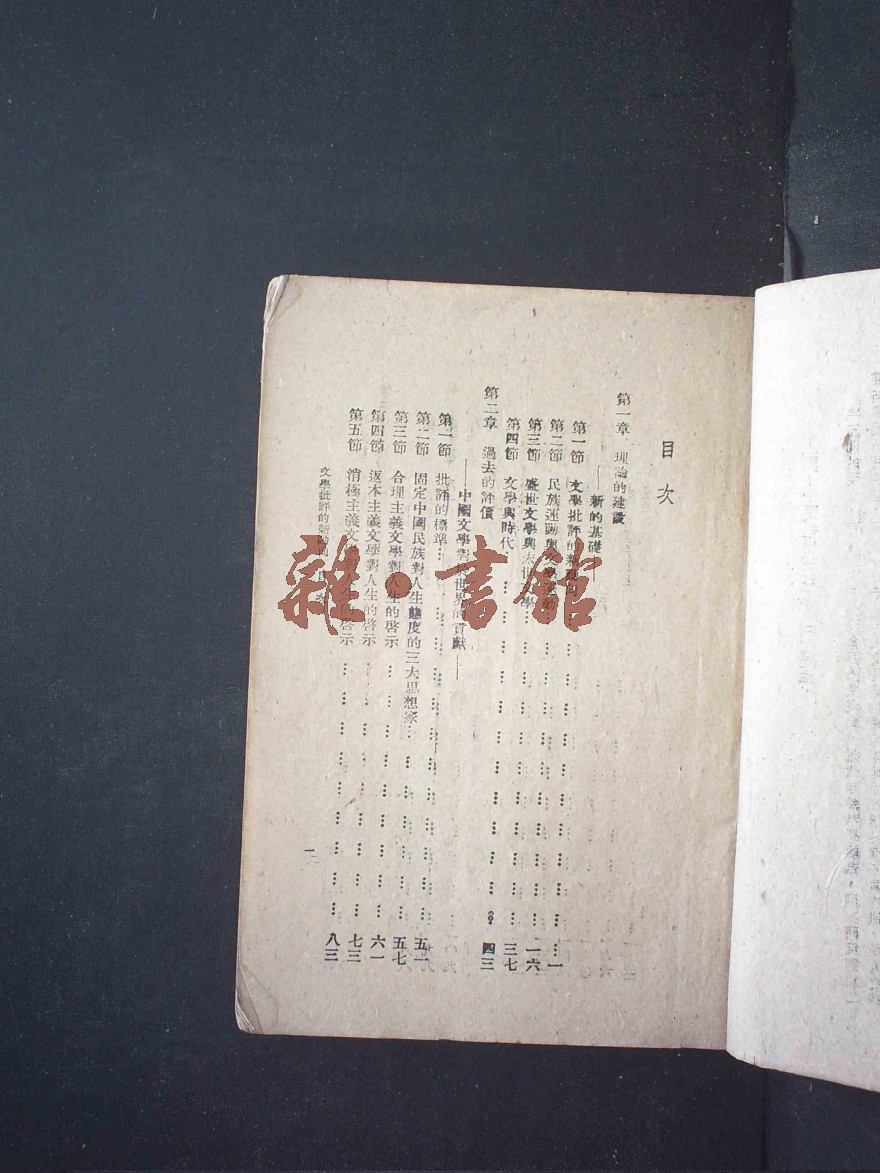 目次
第一章 理論的建設
——新的基礎——
第一節 文學批評的新動向 …… 一
第二節 民族運動與文學運動 …… 一六
第三節 盛世文學與末世文學 …… 三七
第四節 文學與時代 …… 四三
第二章 過去的評價
——中國文學對於世界的貢獻——
第一節 批評的標準 …… 五一
第二節 固定中國民族對人生態度的三大思想家 …… 五七
第三節 合理主義文學對人生的啓示 …… 六一
第四節 返本主義文學對人生的啓示 …… 七三
第五節 消極主義文學對人生的啓示 …… 八三
文學批評的新動向 目次
一
雜·書館